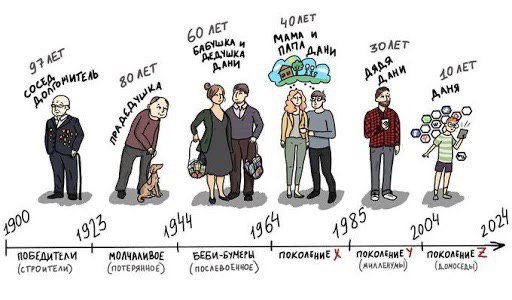 97 ЛЕТ
СОСЕД
ДОЛГОЖИТЕЛЬ
80 ЛЕТ
ПРАДЕДУШКА
60 ЛЕТ
БАБУШКА И
ДЕДУШКА
ДАНИ
40 ЛЕТ
МАМА И
ПАПА
ДАНИ
30 ЛЕТ
ДЯДЯ
ДАНИ
10 ЛЕТ
ДАНЯ
1900
1923
1944
1964
1985
2004
2024
ПОБЕДИТЕЛИ
(СТРОИТЕЛИ)
МОЛЧАЛИВОЕ
(ПОТЕРЯННОЕ)
БЕБИ-БУМЕРЫ
(ПОСЛЕВОЕННОЕ)
ПОКОЛЕНИЕ X
ПОКОЛЕНИЕ Y
(МИЛЛЕНИУМЫ)
ПОКОЛЕНИЕ Z
(ДОМОСЕДЫ)